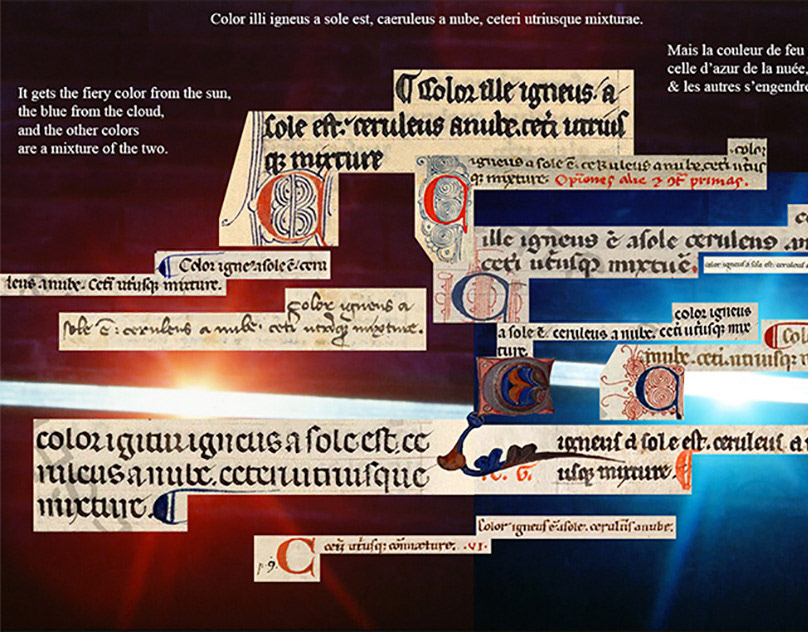 Color illi igneus a sole est, caeruleus a nube, ceteri utriusque mixturae.
Mais la couleur de feu
celle d’azur de la nuée,
& les autres s’engendre
It gets the fiery color from the sun,
the blue from the cloud,
and the other colors
are a mixture of the two.
Color ille igneus. a
sole est. ceruleus a nube. ceti utrius
q; mixture
color
igneus a sole ē. ceruleus a nube. ceti utrius
q; mixture.
ille igneus ē a sole ceruleus a
ceti utriusq; mixture.
Color igneus a sole ē. ceru
leus a nube. Ceti utriusq; mixture.
Color igneus a
sole ē: ceruleus a nube. ceti utriusq; mixture.
color igneus
a sole ē. ceruleus a nube. ceti utriusq; mix
ture.
Col
nube. ceti. utriusq: m
color igitur igneus a sole est. ce
ruleus a nube. ceteri utriusque
mixture.
igneus a sole est. ceruleus a
usq; mixture.
Color igneus ē a sole. ceruleus a nube.
C ceti utriusq; .VI.